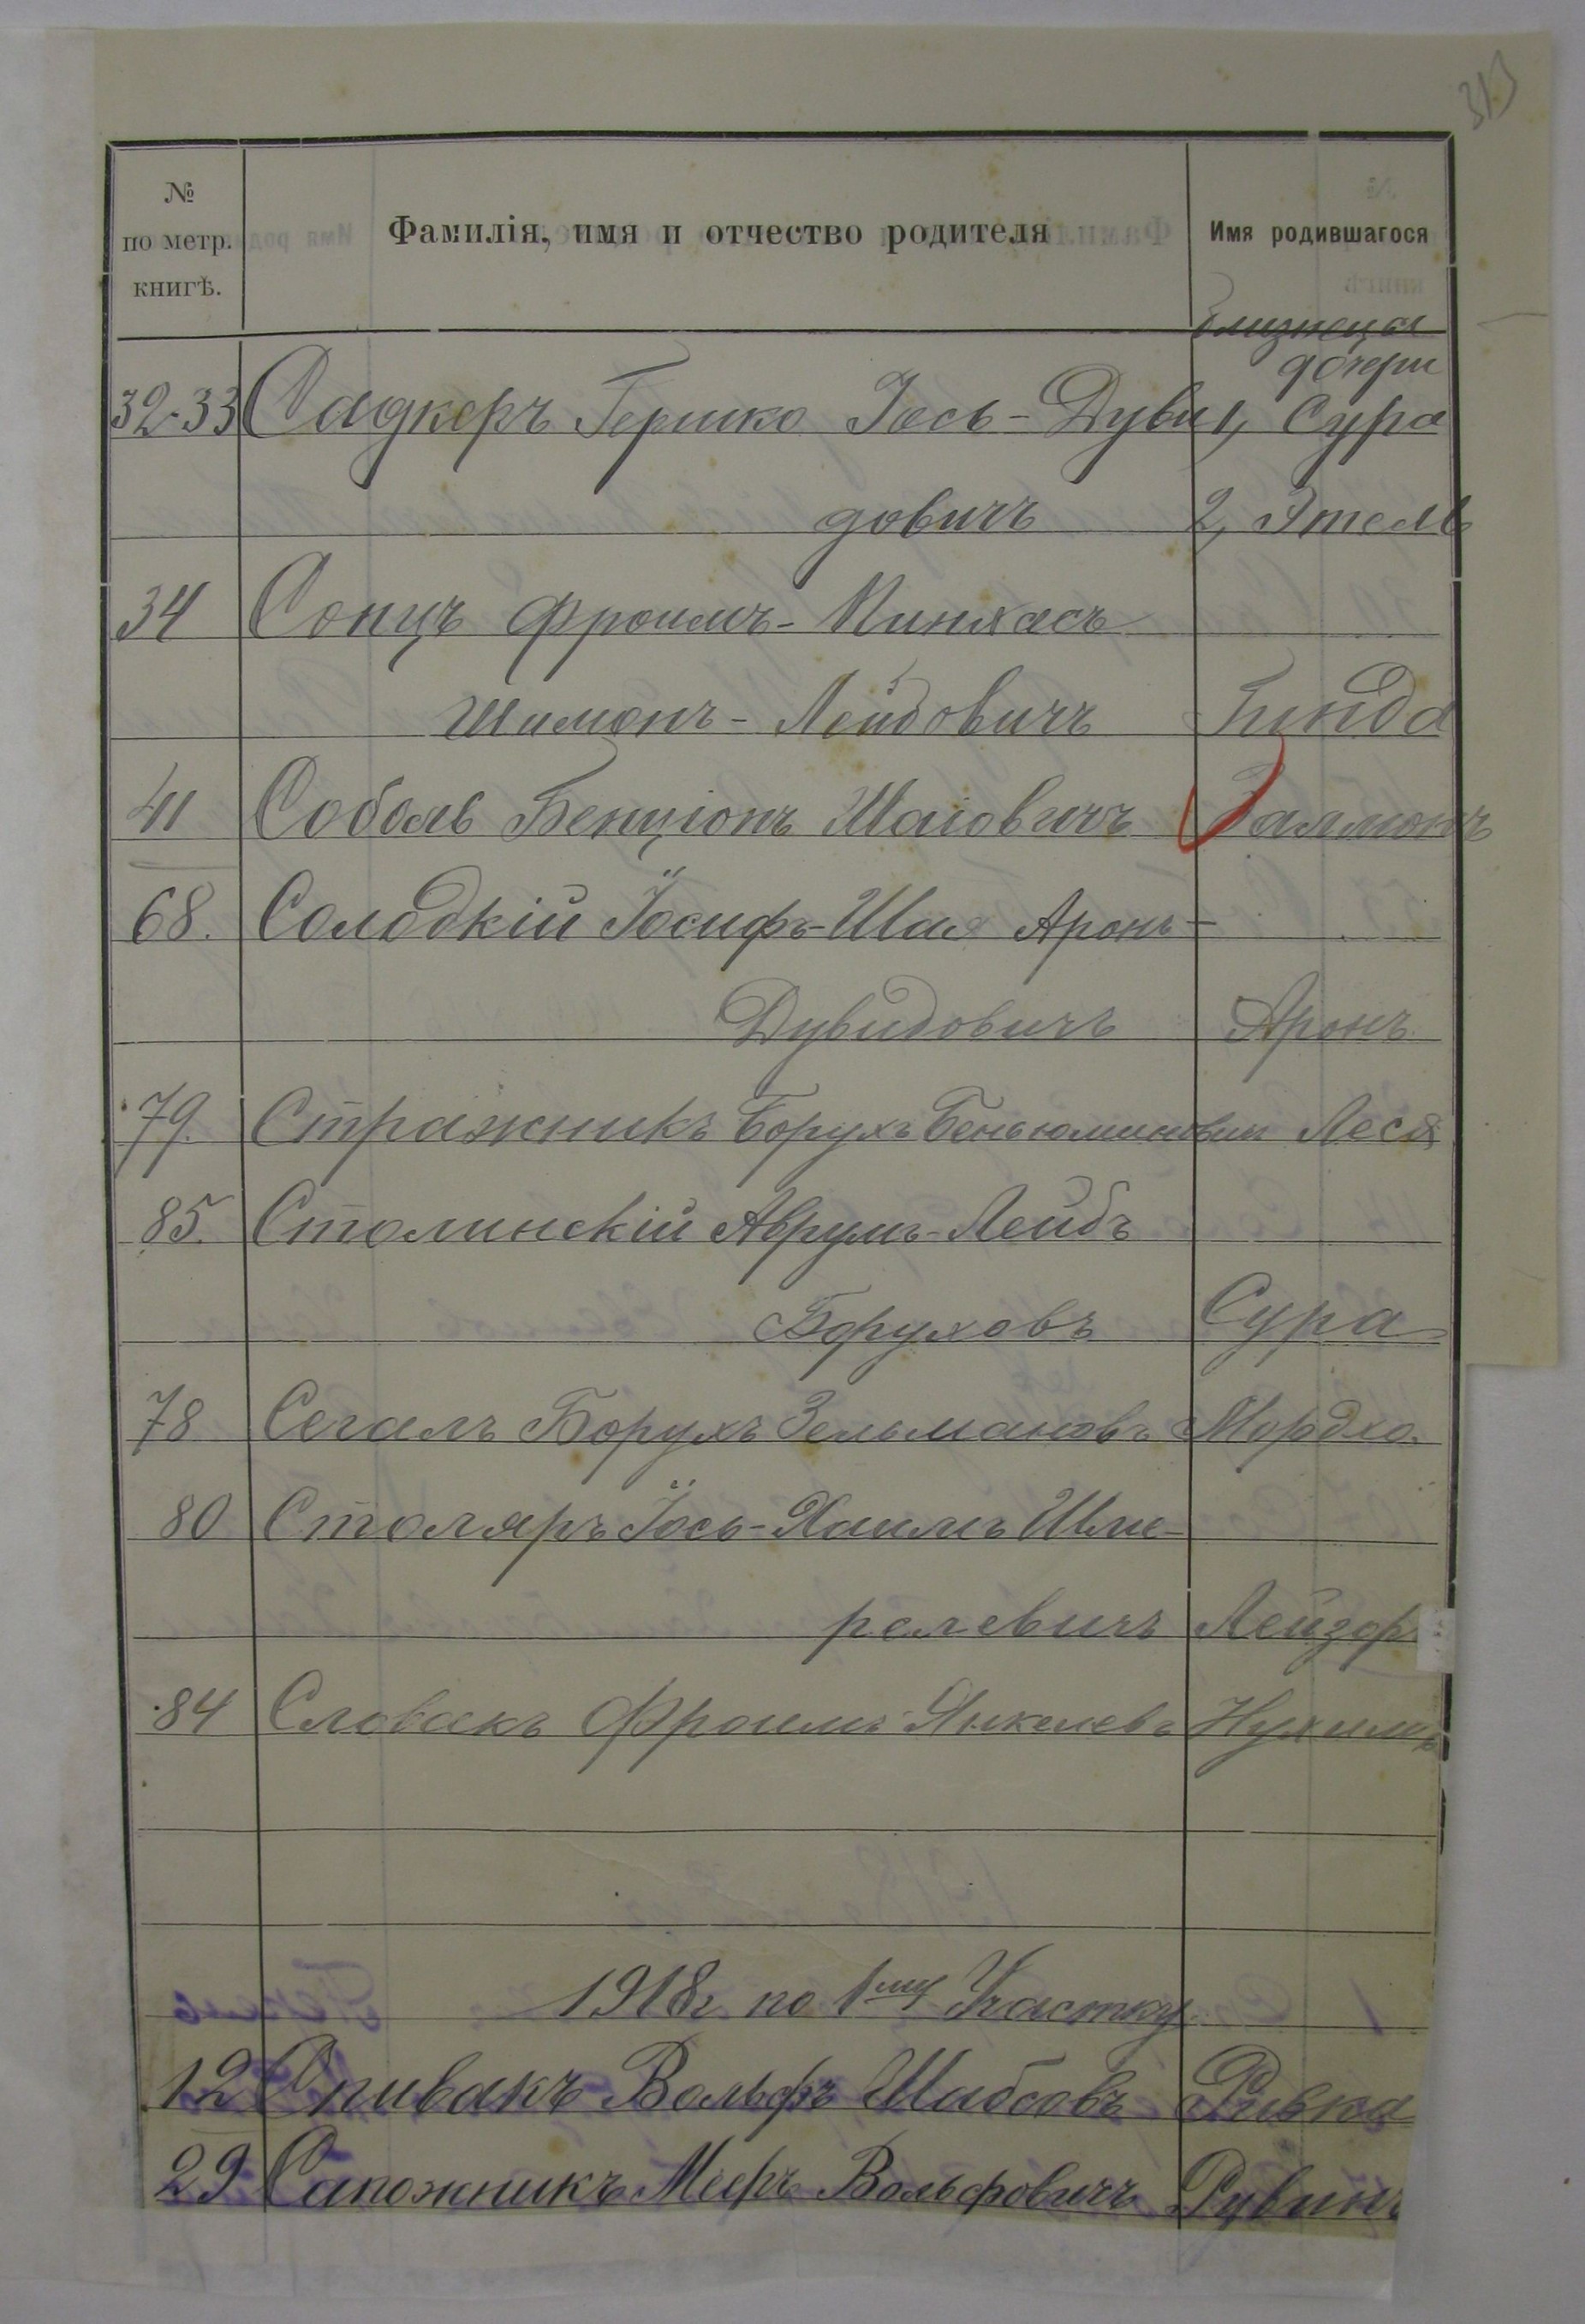 313
№ по метр. книгѣ. Фамилія, имя и отчество родителя Имя родившагося
близнеца
дочери
32-33 Садкеръ Гершко Іось-Дуви 1, Сура
довичъ 2, Этель
34 Сопцъ Фроимъ-Пинхасъ
Шимонъ-Лейбовичъ Гинда
41 Соболь Бенціонъ Шаіовичъ Залмонъ
68. Солодкій Іосифъ-Шая Аронъ-
Дувидовичъ Аронъ
79. Стражникъ Борухъ Беньюминович Леся
85. Столинскій Аврумъ-Лейбъ
Боруховъ Сура
78 Сегалъ Борухъ Зельмановъ Мордхо.
80 Столяръ Іось-Хаимъ Шме-
релевичъ Лейзор
84 Словакъ Фроимъ Янкелевъ Нухимъ
1918г по 1му Участку.
12 Спивакъ Вольфъ Шабсовъ Ривка
29 Сапожникъ Меер Вольфовичъ Рувинъ